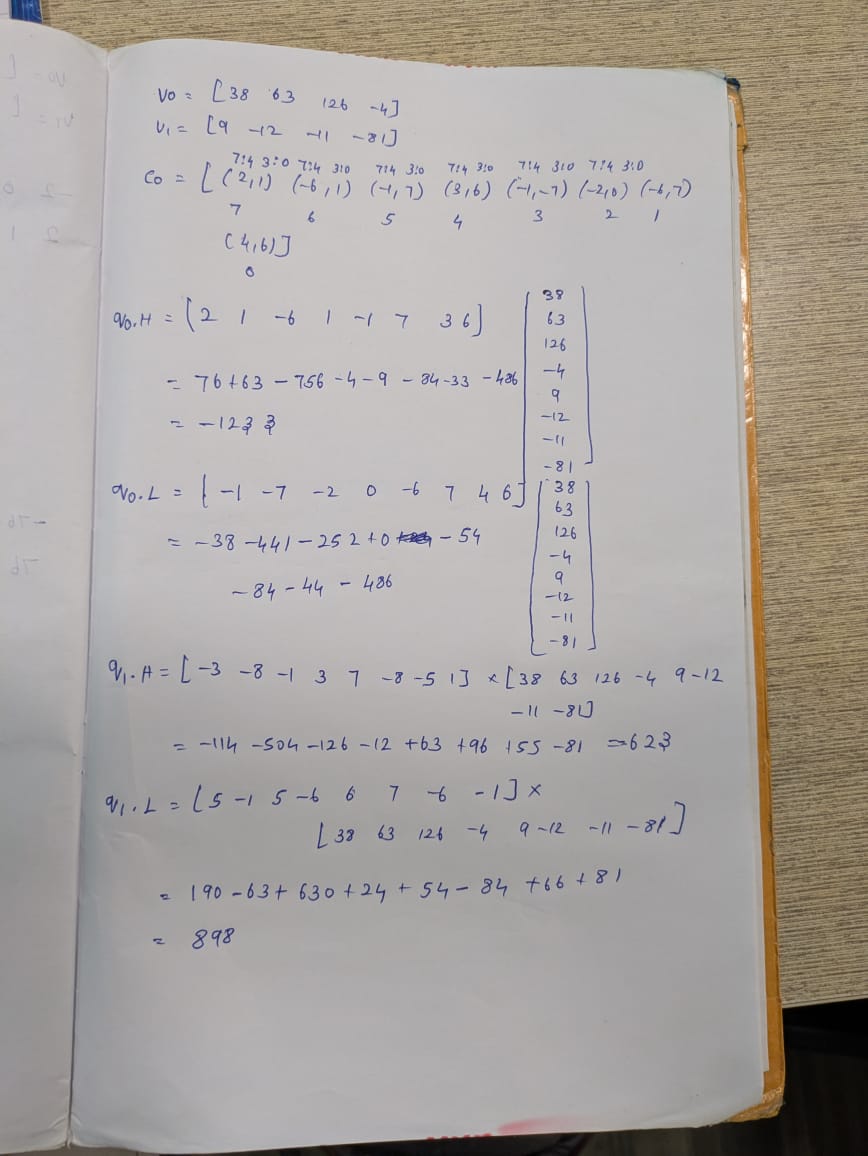 V0 = [38 63 126 -4]
V1 = [9 -12 -11 -81]
7:4 3:0 7:4 3:0 7:4 3:0 7:4 3:0 7:4 3:0 7:4 3:0
C0 = [(2,1) (-6,1) (-1,7) (3,6) (-1,-7) (-2,0) (-6,7)
7 6 5 4 3 2 1
(4,6)]
0
q0.H = [2 1 -6 1 -1 7 3 6] [38 63 126 -4 9 -12 -11 -81]
= 76+63-756-4-9-84-33-486
= -1233
q0.L = [-1 -7 -2 0 -6 7 4 6] [38 63 126 -4 9 -12 -11 -81]
= -38-441-252+0 -54
-84-44-486
q1.H = [-3 -8 -1 3 7 -8 -5 1] × [38 63 126 -4 9 -12
-11 -81]
= -114 -504 -126 -12 +63 +96 +55 -81 =-623
q1.L = [5 -1 5 -6 6 7 -6 -1] ×
[38 63 126 -4 9 -12 -11 -81]
= 190-63+630+24+54-84+66+81
= 898